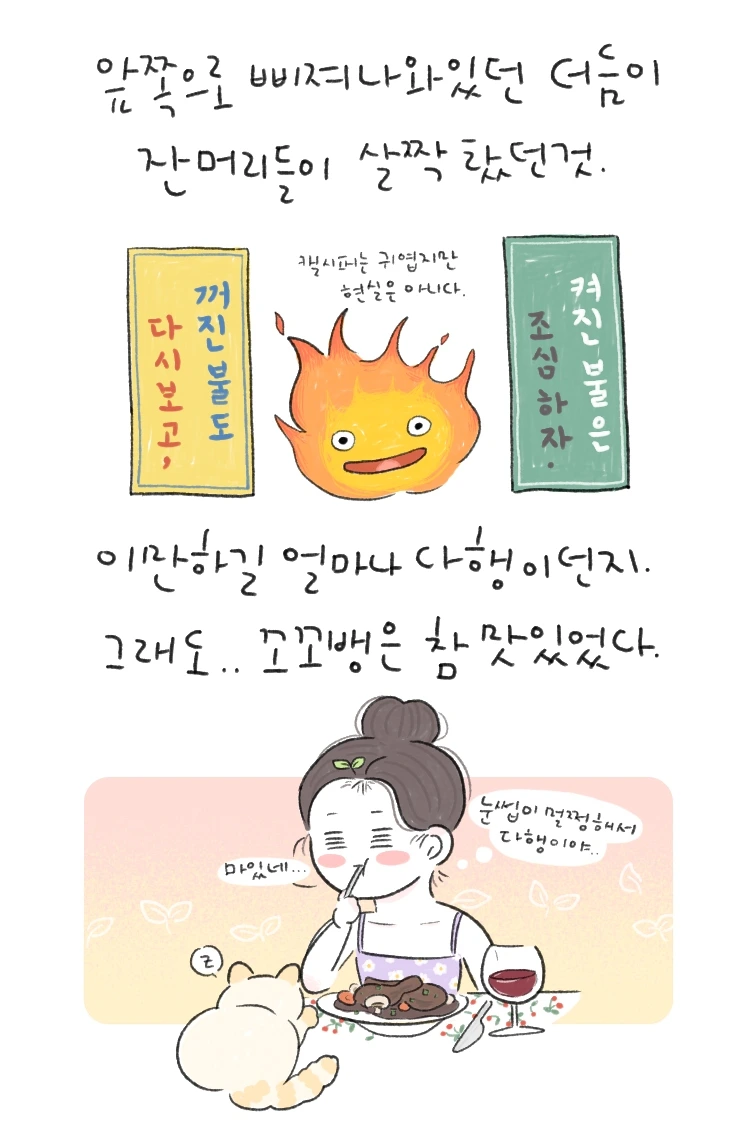 앞쪽으로 삐져나와있던 더듬이
잔머리들이 살짝 탔던것.
꺼진 불도
다시보고,
캘시퍼는 귀엽지만
현실은 아니다.
켜진 불은
조심하자.
이만하길 얼마나 다행이던지.
그래도.. 꼬꼬뱅은 참 맛있었다.
눈썹이 멀쩡해서
다행이야..
마있네...
z